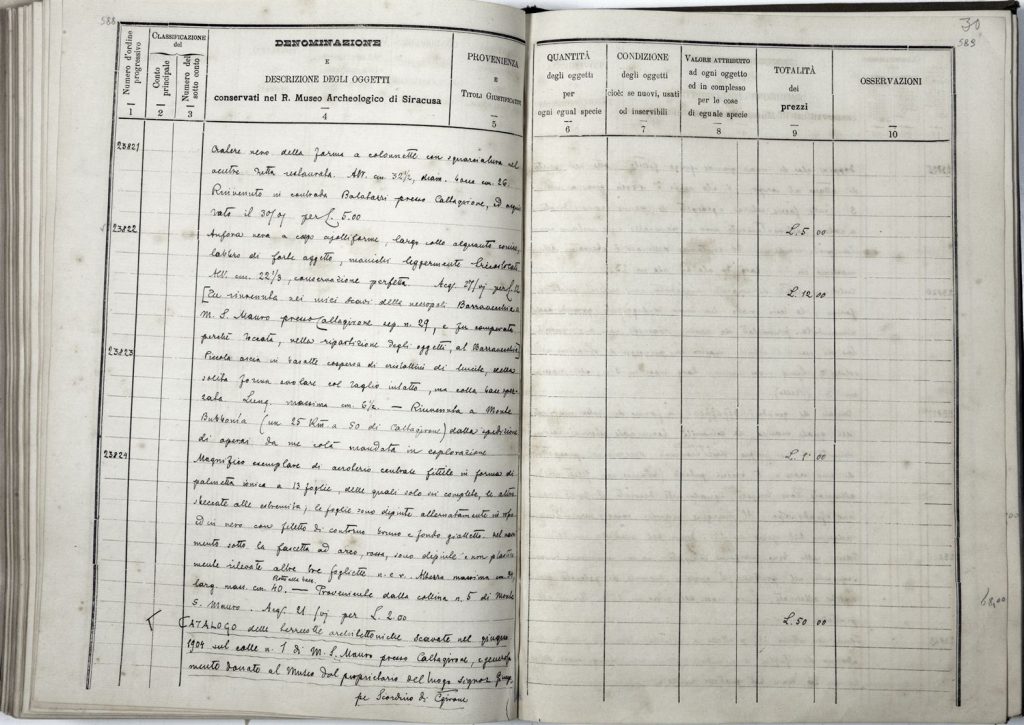 588
Numero d'ordine progressivo
CLASSIFICAZIONE del
Conto principale
Numero del sotto conto
DENOMINAZIONE
E
DESCRIZIONE DEGLI OGGETTI
conservati nel R. Museo Archeologico di Siracusa
PROVENIENZA
E
TITOLI GIUSTIFICATIVI
1 2 3 4 5
23821
Cratere nero della forma a colonnette con squarciatura nel
ventre detta restaurata. Alt. cm 32½, diam. bocca cm. 26.
Rinvenuto in contrada Balatazzi presso Caltagirone, ed acqui
stato il 30/VI per L. 5.00
23822
Anfora nera a corpo largo collo alquanto conico,
labbro di forte aggetto, manichi leggermente tricostolati.
Alt. cm. 22⅓, conservazione perfetta. Acq. 27/VI per L. 12
[Fu rinvenuta nei miei scavi della necropoli
M. S. Mauro presso Caltagirone sep. n. 29, e fu comperata
perchè toccata, nella ripartizione degli oggetti, al
23823
Piccola ascia in basalte cospersa di cristallini di leucite, della
solita forma ovolare col taglio intatto, ma colla base
Lung. massima cm. 6½. — Rinvenuta a Monte
Bubbonia (un 25 Km. a SO di Caltagirone) dalla spedizione
di operai da me colà mandata in esplorazione
23824
Magnifico esemplare di acroterio centrale fittile in forma di
palmetta ionica a 13 foglie, delle quali solo sei complete, le altre
sbeccate alle estremità; le foglie sono dipinte alternatamente in rosso
ed in nero con filetto di contorno bruno e fondo gialletto. Nel
mento sotto la fascetta ad arco, rossa, sono dipinte e non plastica
mente rilevate altre tre fogliette n. e r. Altezza massima cm
larg. mass. cm. 40. — Proveniente dalla collina n. 5 di Monte
S. Mauro. Acq. 21/VI per L. 2.00
CATALOGO delle terrecotte architettoniche scavate nel giugno
1904 sul colle n. 1 di M. S. Mauro presso Caltagirone, e generosa
mente donate al Museo dal proprietario del luogo signor Giusep
pe Scordino di
30
589
QUANTITÀ
degli oggetti
per
ogni egual specie
CONDIZIONE
degli oggetti
cioè: se nuovi, usati
od inservibili
VALORE ATTRIBUITO
ad ogni oggetto
ed in complesso
per le cose
di eguale specie
TOTALITÀ
dei
prezzi
OSSERVAZIONI
6 7 8 9 10
L. 5 00
L. 12 00
L. 1 00
L. 50 00
68,00